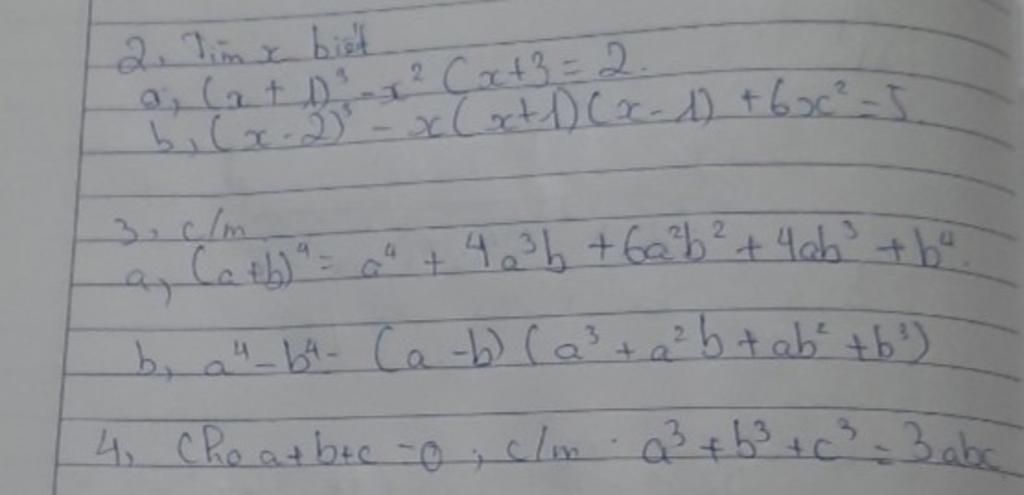 2, Tìm x biết
a, (x + 1)³ - x² (x+3 = 2.
b, (x - 2)³ - x(x+1)(x-1) + 6x² = 5
3, c/m
a, (a+b)⁴ = a⁴ + 4a³b + 6a²b² + 4ab³ + b⁴.
b, a⁴ - b⁴ - (a - b) (a³ + a²b + ab² + b³)
4, Cho a+b+c = 0 ; c/m : a³ + b³ + c³ = 3abc